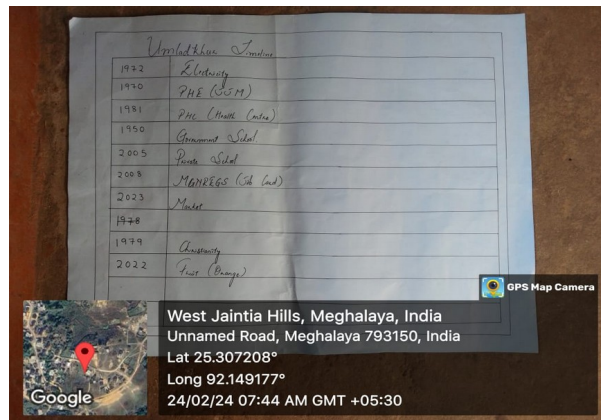 Umladkhar Timeline
1972 Electricity
1970 PHE (JJM)
1981 PHC (Health Centre)
1950 Government School
2005 Private School
2008 MGNREGS (Job Card)
2023 Market
1978
1979 Christianity
2022 Fruit (Orange)
GPS Map Camera
West Jaintia Hills, Meghalaya, India
Unnamed Road, Meghalaya 793150, India
Lat 25.307208°
Long 92.149177°
24/02/24 07:44 AM GMT +05:30
Google